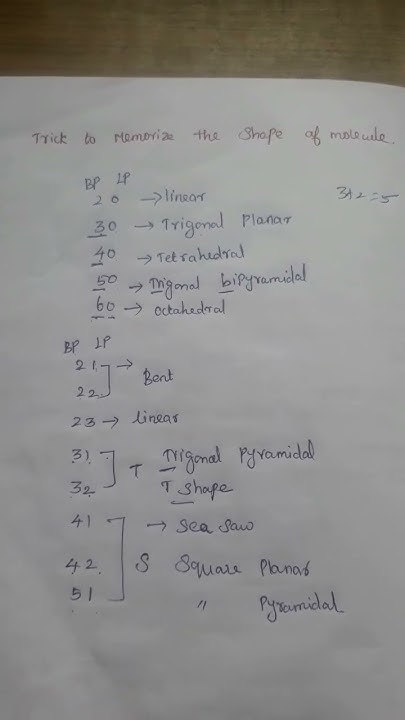 Trick to Memorize the Shape of molecule.
BP LP
20 → linear
3+2=5
30 → Trigonal Planar
40 → Tetrahedral
50 → Trigonal bipyramidal
60 → octahedral
BP LP
21 →
Bent
22
23 → linear
31 Trigonal Pyramidal
T
32 T Shape
41 → Sea Saw
42 S Square Planar
51 " Pyramidal